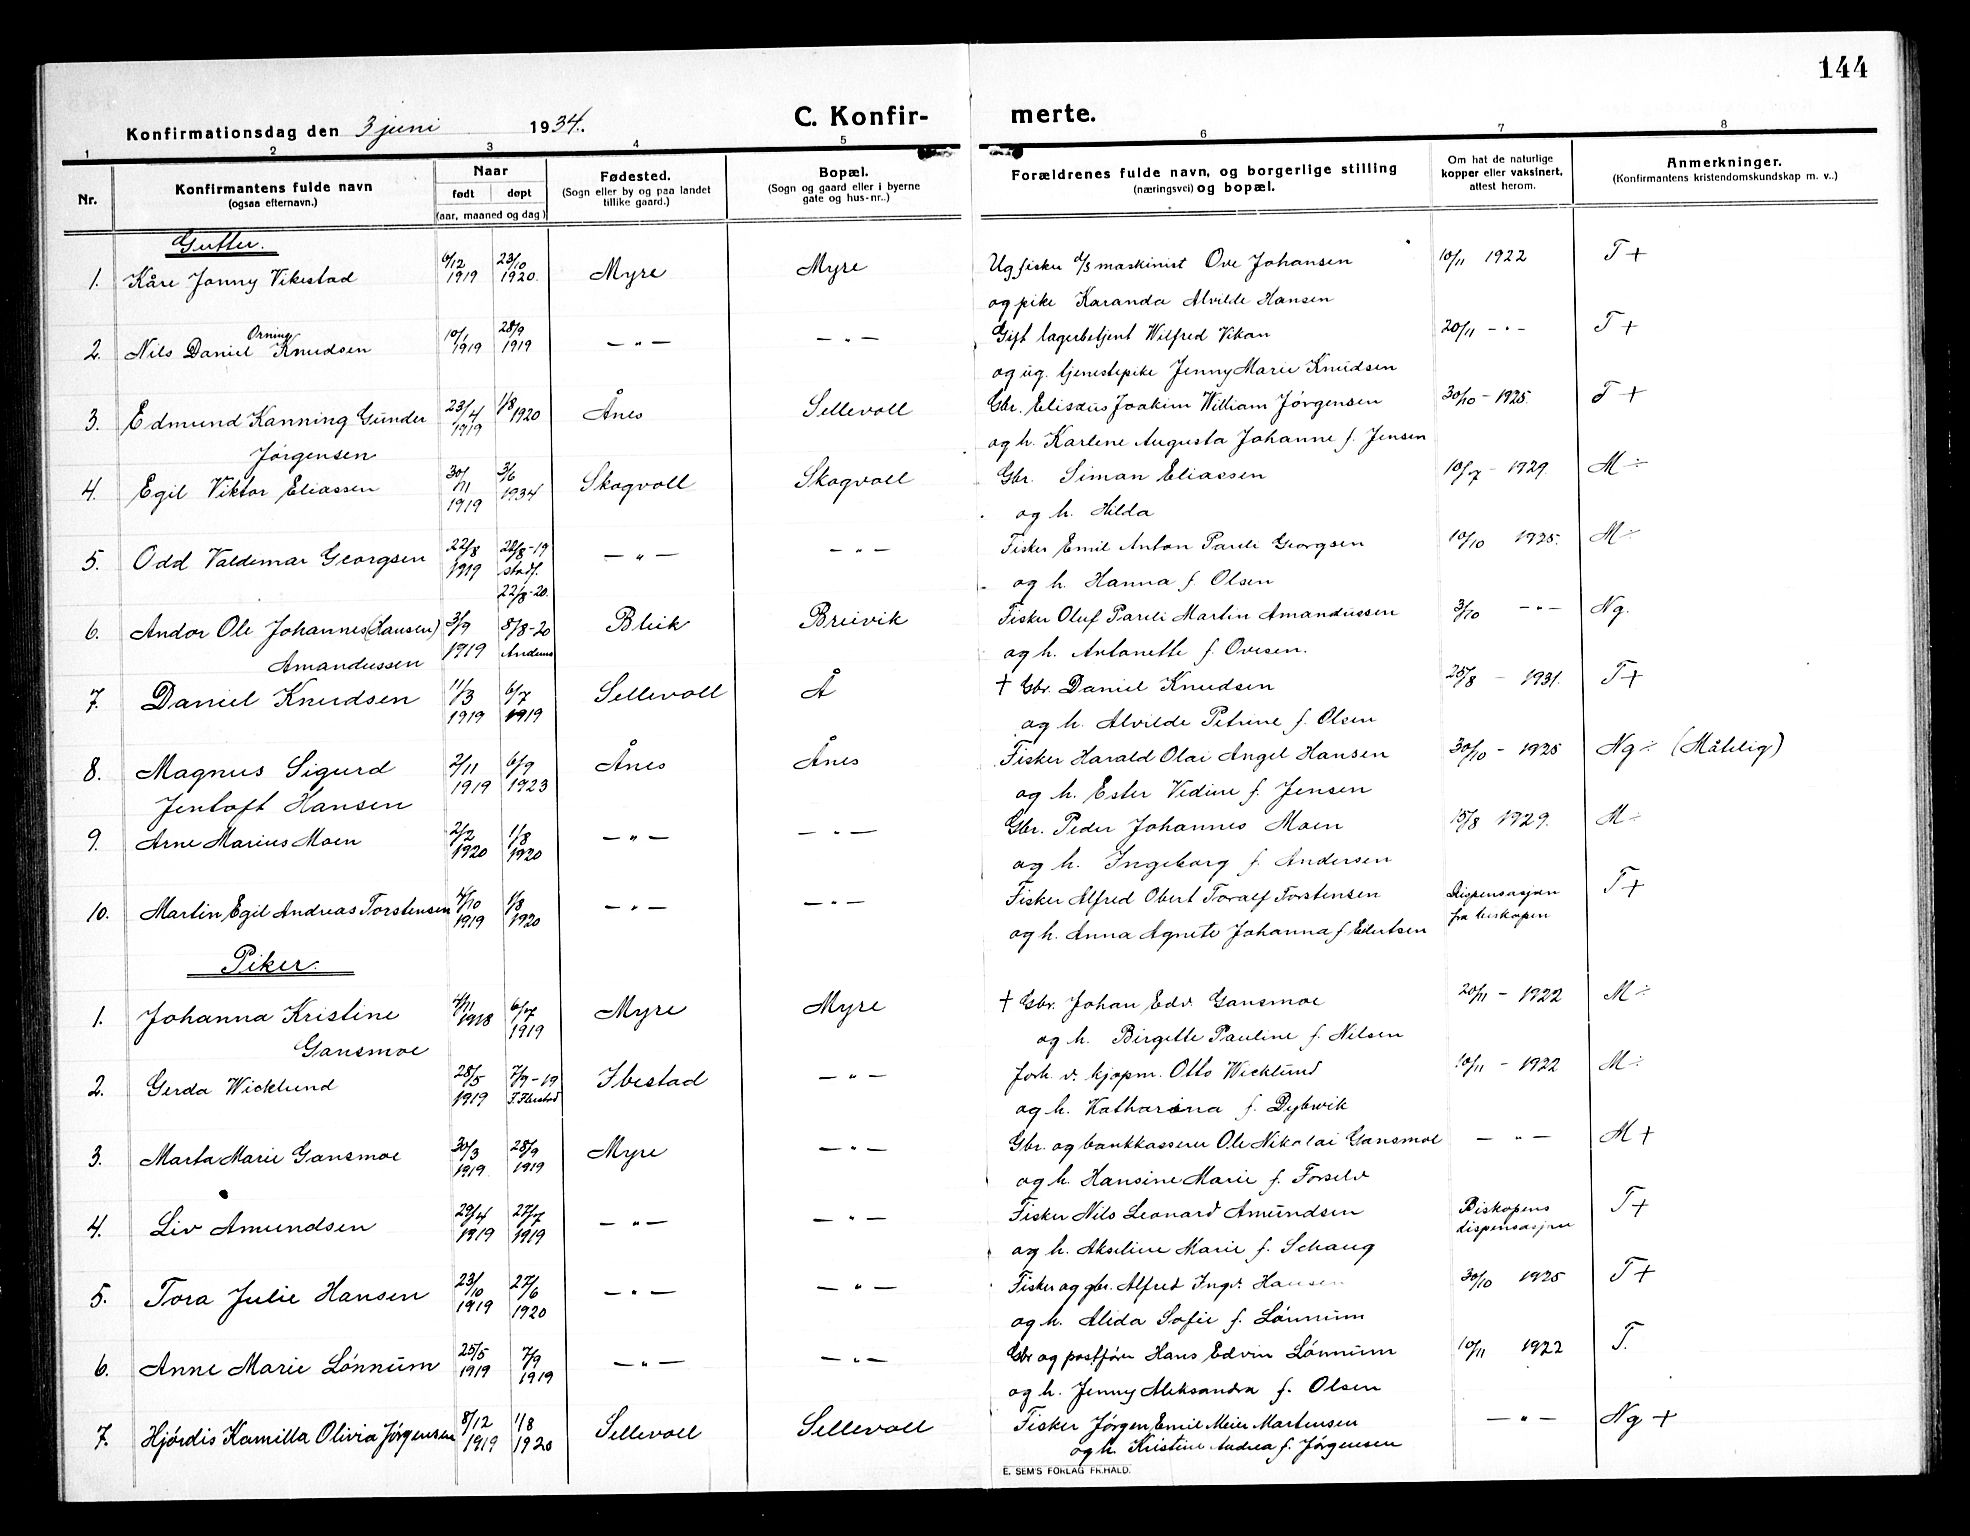 144
Konfirmationsdag den 3 juni 1934.
C. Konfirmerte.
1 2 3 4 5 6 7 8
Nr.
Konfirmantens fulde navn
(ogsaa efternavn.)
Naar
født døpt
(aar, maaned og dag)
Fødested.
(Sogn eller by og paa landet
tillike gaard.)
Bopæl.
(Sogn og gaard eller i byerne
gate og hus-nr..)
Forældrenes fulde navn, og borgerlige stilling
(næringsvei) og bopæl.
Om hat de naturlige
kopper eller vaksinert,
attest herom.
Anmerkninger.
(Konfirmantens kristendomskundskap m. v..)
Gutter.
1. Kåre Jonny Vikestad 6/12 1919 23/10 1920. Myre Myre Ug fisker o/s maskinist Ove Johansen 10/11 1922 T +
og pike Karanda Alvilde Hansen
2. Nils Daniel Orning Knudsen 10/1 1919 28/9 1919 — " — — " — Gift lagerbetjent Wilfred Vikan 20/11 - " - T +
og ug. tjenestepike Jenny Marie Knudsen
3. Edmund Kanning Gunder 23/4 1919 1/8 1920 Ånes Sellevoll Gbr. Elisæus Joakim William Jørgensen 30/10 - 1925. T +
Jørgensen og h. Karline Augusta Johanne f. Jensen
4. Egil Viktor Eliassen 30/11 1919 3/6 1934 Skogvoll Skogvoll Gbr. Siman Eliassen 10/7 - 1929. M ÷
og h. Hilda
5. Odd Valdemar Georgsen 22/8 1919 28/8-19 stadf. 22/8-20. — " — — " — Fisker Emil Anton Pareli Georgsen 10/10 1925. M ÷
og h. Hanna f. Olsen
6. Andor Ole Johannes (Hansen) 3/9 1919 8/8-20 Andenes Bleik Breivik Fisker Oluf Pareli Martin Amandussen 3/10 - " - Ng.
Amandussen og h. Antonette f. Ovesen.
7. Daniel Knudsen 11/3 1919 6/7 1919 Sellevoll Å † Gbr. Daniel Knudsen 25/8 - 1931. T +
og h. Alvilde Petrine f. Olsen
8. Magnus Sigurd 2/11 1919 6/9 1923 Ånes Ånes Fisker Harald Olai Angel Hansen 30/10 - 1925 Ng ÷ (Måtelig)
Jentoft Hansen og h. Ester Vedine f. Jensen
9. Arne Marius Moen 2/2 1920 1/8 1920 — " — — " — Gbr. Peder Johannes Moen 15/8 1929. M ÷
og h. Ingeborg f. Andersen
10. Martin Egil Andreas Torstensen 4/10 1919 1/8 1920 — " — — " — Fisker Alfred Obert Toralf Torstensen Dispensasjon fra biskopen T +
og h. Anna Agnete Johanna f Edertsen
Piker.
1. Johanna Kristine 4/11 1918 6/7 1919 Myre Myre † Gbr. Johan Edv. Gansmoe 20/11 - 1922 M ÷
Gansmoe og h. Birgitte Pauline f. Nilsen
2. Gerda Wicklund 28/5 1919 7/9-19 I. Ibestad Ibestad — " — forh. v. kjøpm. Otto Wicklund 10/11 - 1922 M ÷
og h. Katharina f. Dybwik
3. Marta Marie Gansmoe 30/3 1919. 28/9 1919 Myre — " — Gbr. og bankkasserer Ole Nikolai Gansmoe — " — M +
og h. Hansine Marie f. Forselv
4. Liv Amundsen 29/4 1919 27/7 1919 — " — — " — Fisker Nils Leonard Amundsen Biskopens dispensasjon T +
og h. Akseline Marie f. Schaug
5. Tora Julie Hansen 23/10 1919 27/6 1920 — " — — " — Fisker og gbr. Alfred Ingv. Hansen 30/10 1925 T +
og h. Alida Sofie f. Lønnum
6. Anne Marie Lønnum 25/5 1919 7/9 1919 — " — — " — Gbr og postfører Hans Edvin Lønnum 10/11 1922 T.
og h. Jenny Aleksandra f. Olsen
7. Hjørdis Kamilla Olivia Jørgensen 8/12 1919 1/8 1920 Sellevoll Sellevoll Fisker Jørgen Emil Meier Martensen — " — Ng +
og h. Kristine Andrea f. Jørgensen
E. SEM'S FORLAG FR.HALD.